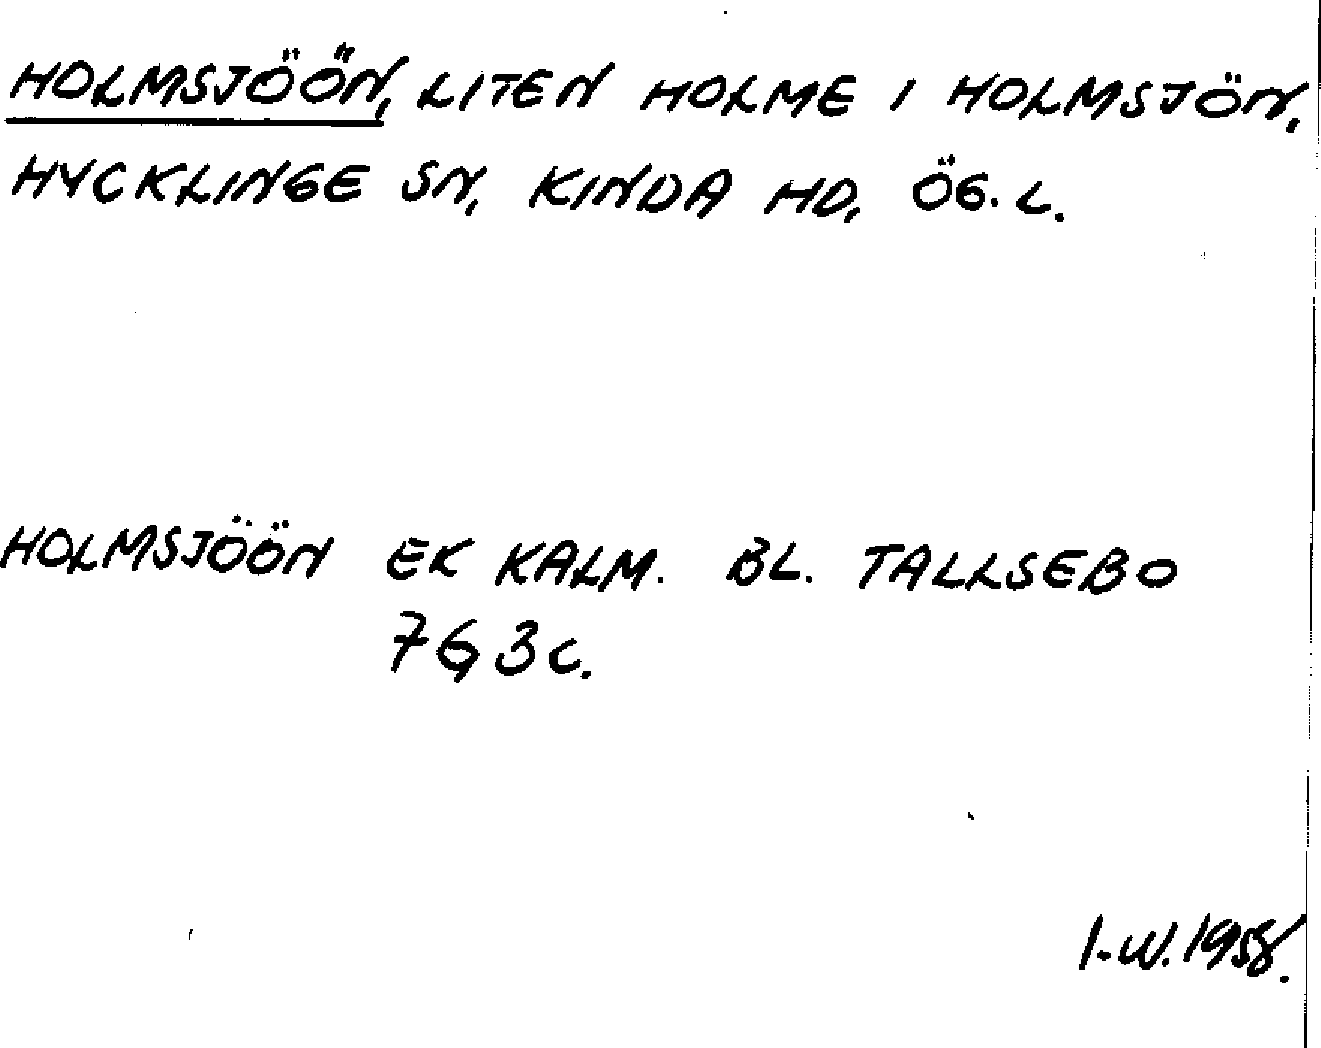 HOLMSJÖÖN, LITEN HOLME I HOLMSJÖN,
HYCKLINGE SN, KINDA HD, ÖG. L.
HOLMSJÖÖN EK KALM. BL. TALLSEBO
7G 3c.
I-W. 1958.